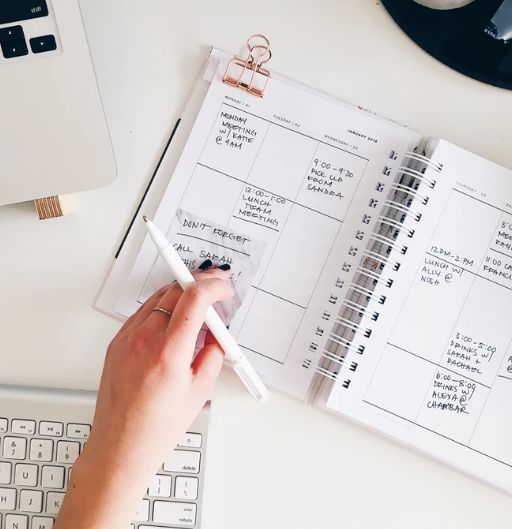 shift
MONDAY / 01
TUESDAY / 02
WEDNESDAY / 03
JANUARY 2018
MONDAY
MEETING
W/ KATIE
@ 9AM
12:00-1:00
LUNCH
TEAM
MEETING
9:00-9:30
PICK UP
FROM
SANDRA
DON'T FORGET
CALL SARAH
THURSDAY / 04
12PM-2PM
LUNCH W/
ALLY @
NOSH
3:00-5:00
DRINKS W/
SARAH +
RACHAEL
6:00-8:00
DRINKS W/
ALEXA @
CHAMBAR